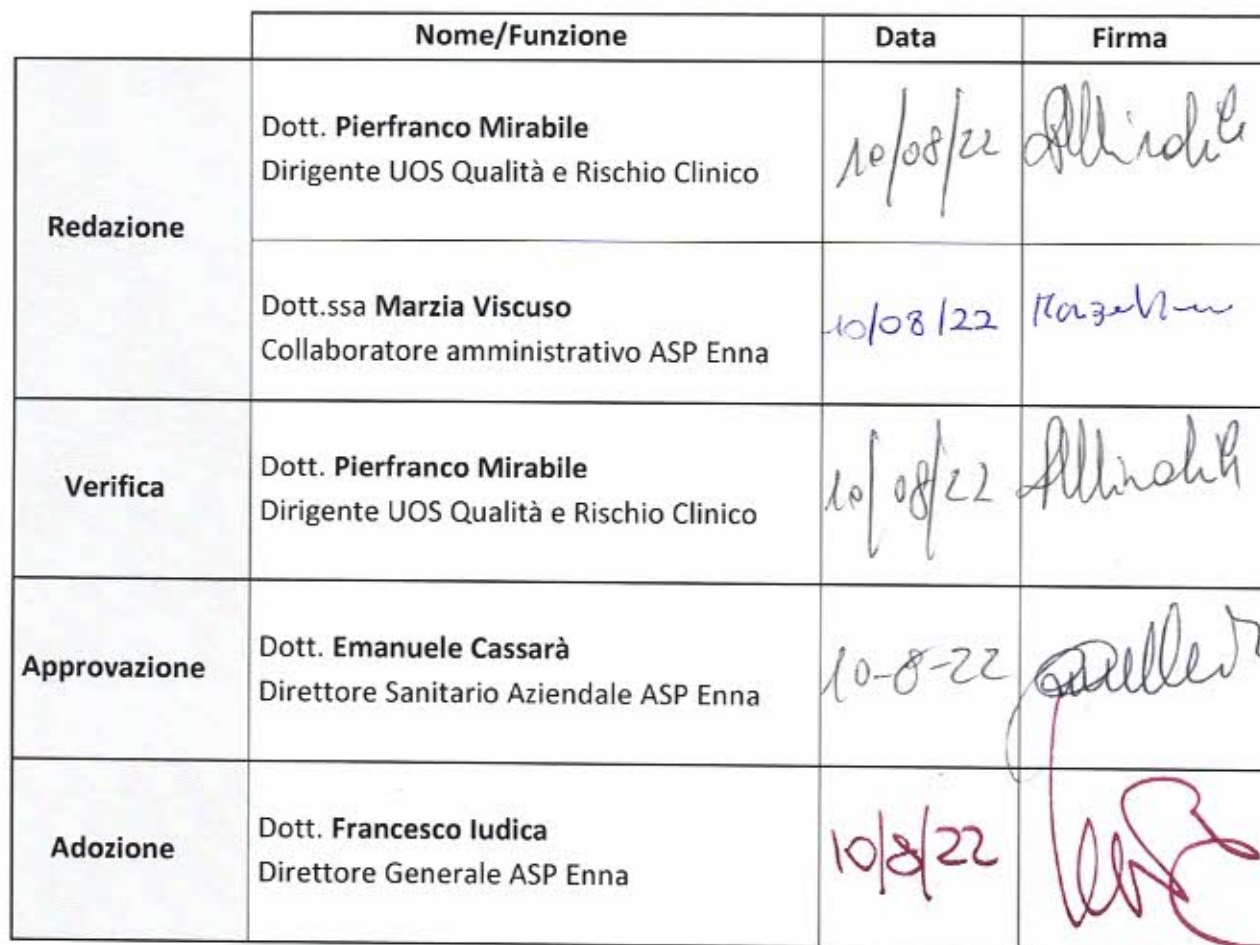 Nome/Funzione Data Firma
Redazione
Dott. Pierfranco Mirabile
Dirigente UOS Qualità e Rischio Clinico
10/08/22
Dott.ssa Marzia Viscuso
Collaboratore amministrativo ASP Enna
10/08/22
Verifica
Dott. Pierfranco Mirabile
Dirigente UOS Qualità e Rischio Clinico
10/08/22
Approvazione
Dott. Emanuele Cassarà
Direttore Sanitario Aziendale ASP Enna
10-8-22
Adozione
Dott. Francesco Iudica
Direttore Generale ASP Enna
10/8/22